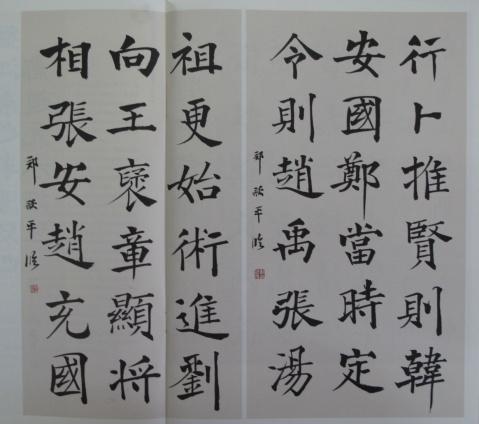 行卜推賢則韓
安國鄭當時定
令則趙禹張湯
平临
祖更始術進劉
向王褒章顯将
相張安趙充國
平临